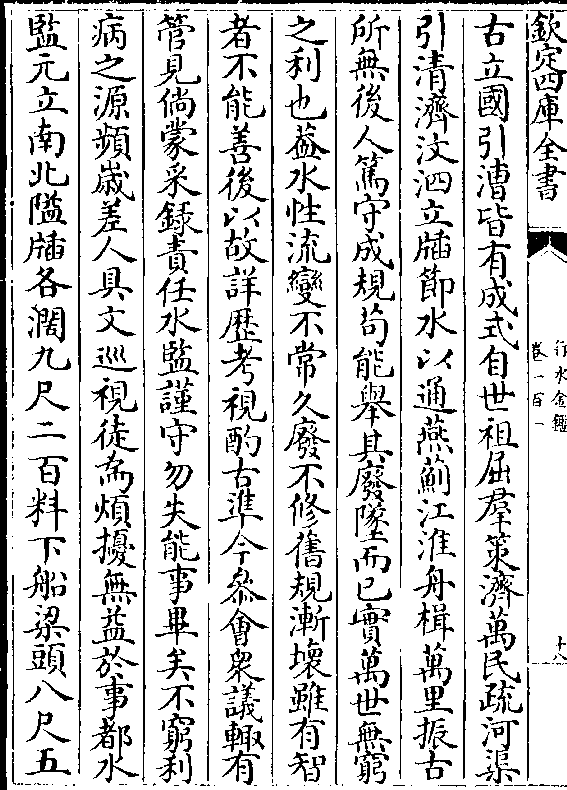 欽定四庫全書
行水金鑑
卷一百一
十八
古立國引漕皆有成式自世祖屈羣策濟萬民疏河渠
引清濟汶泗立牐節水以通燕薊江淮舟楫萬里振古
所無後人篤守成規苟能舉其廢墜而已實萬世無窮
之利也葢水性流變不常久廢不修舊規漸壞雖有智
者不能善後以故詳歴考視酌古準今叅會衆議輙有
管見倘蒙采録責任水監謹守勿失能事畢矣不窮利
病之源頻歲差人具文巡視徒為煩擾無益於事都水
監元立南北隘牐各濶九尺二百料下船梁頭八尺五